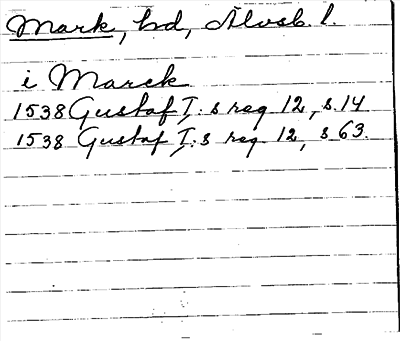 Mark, hd, Älvsb. l.
i Marck
1538 Gustaf I:s reg 12, s. 14
1538 Gustaf I:s reg. 12, s 63.